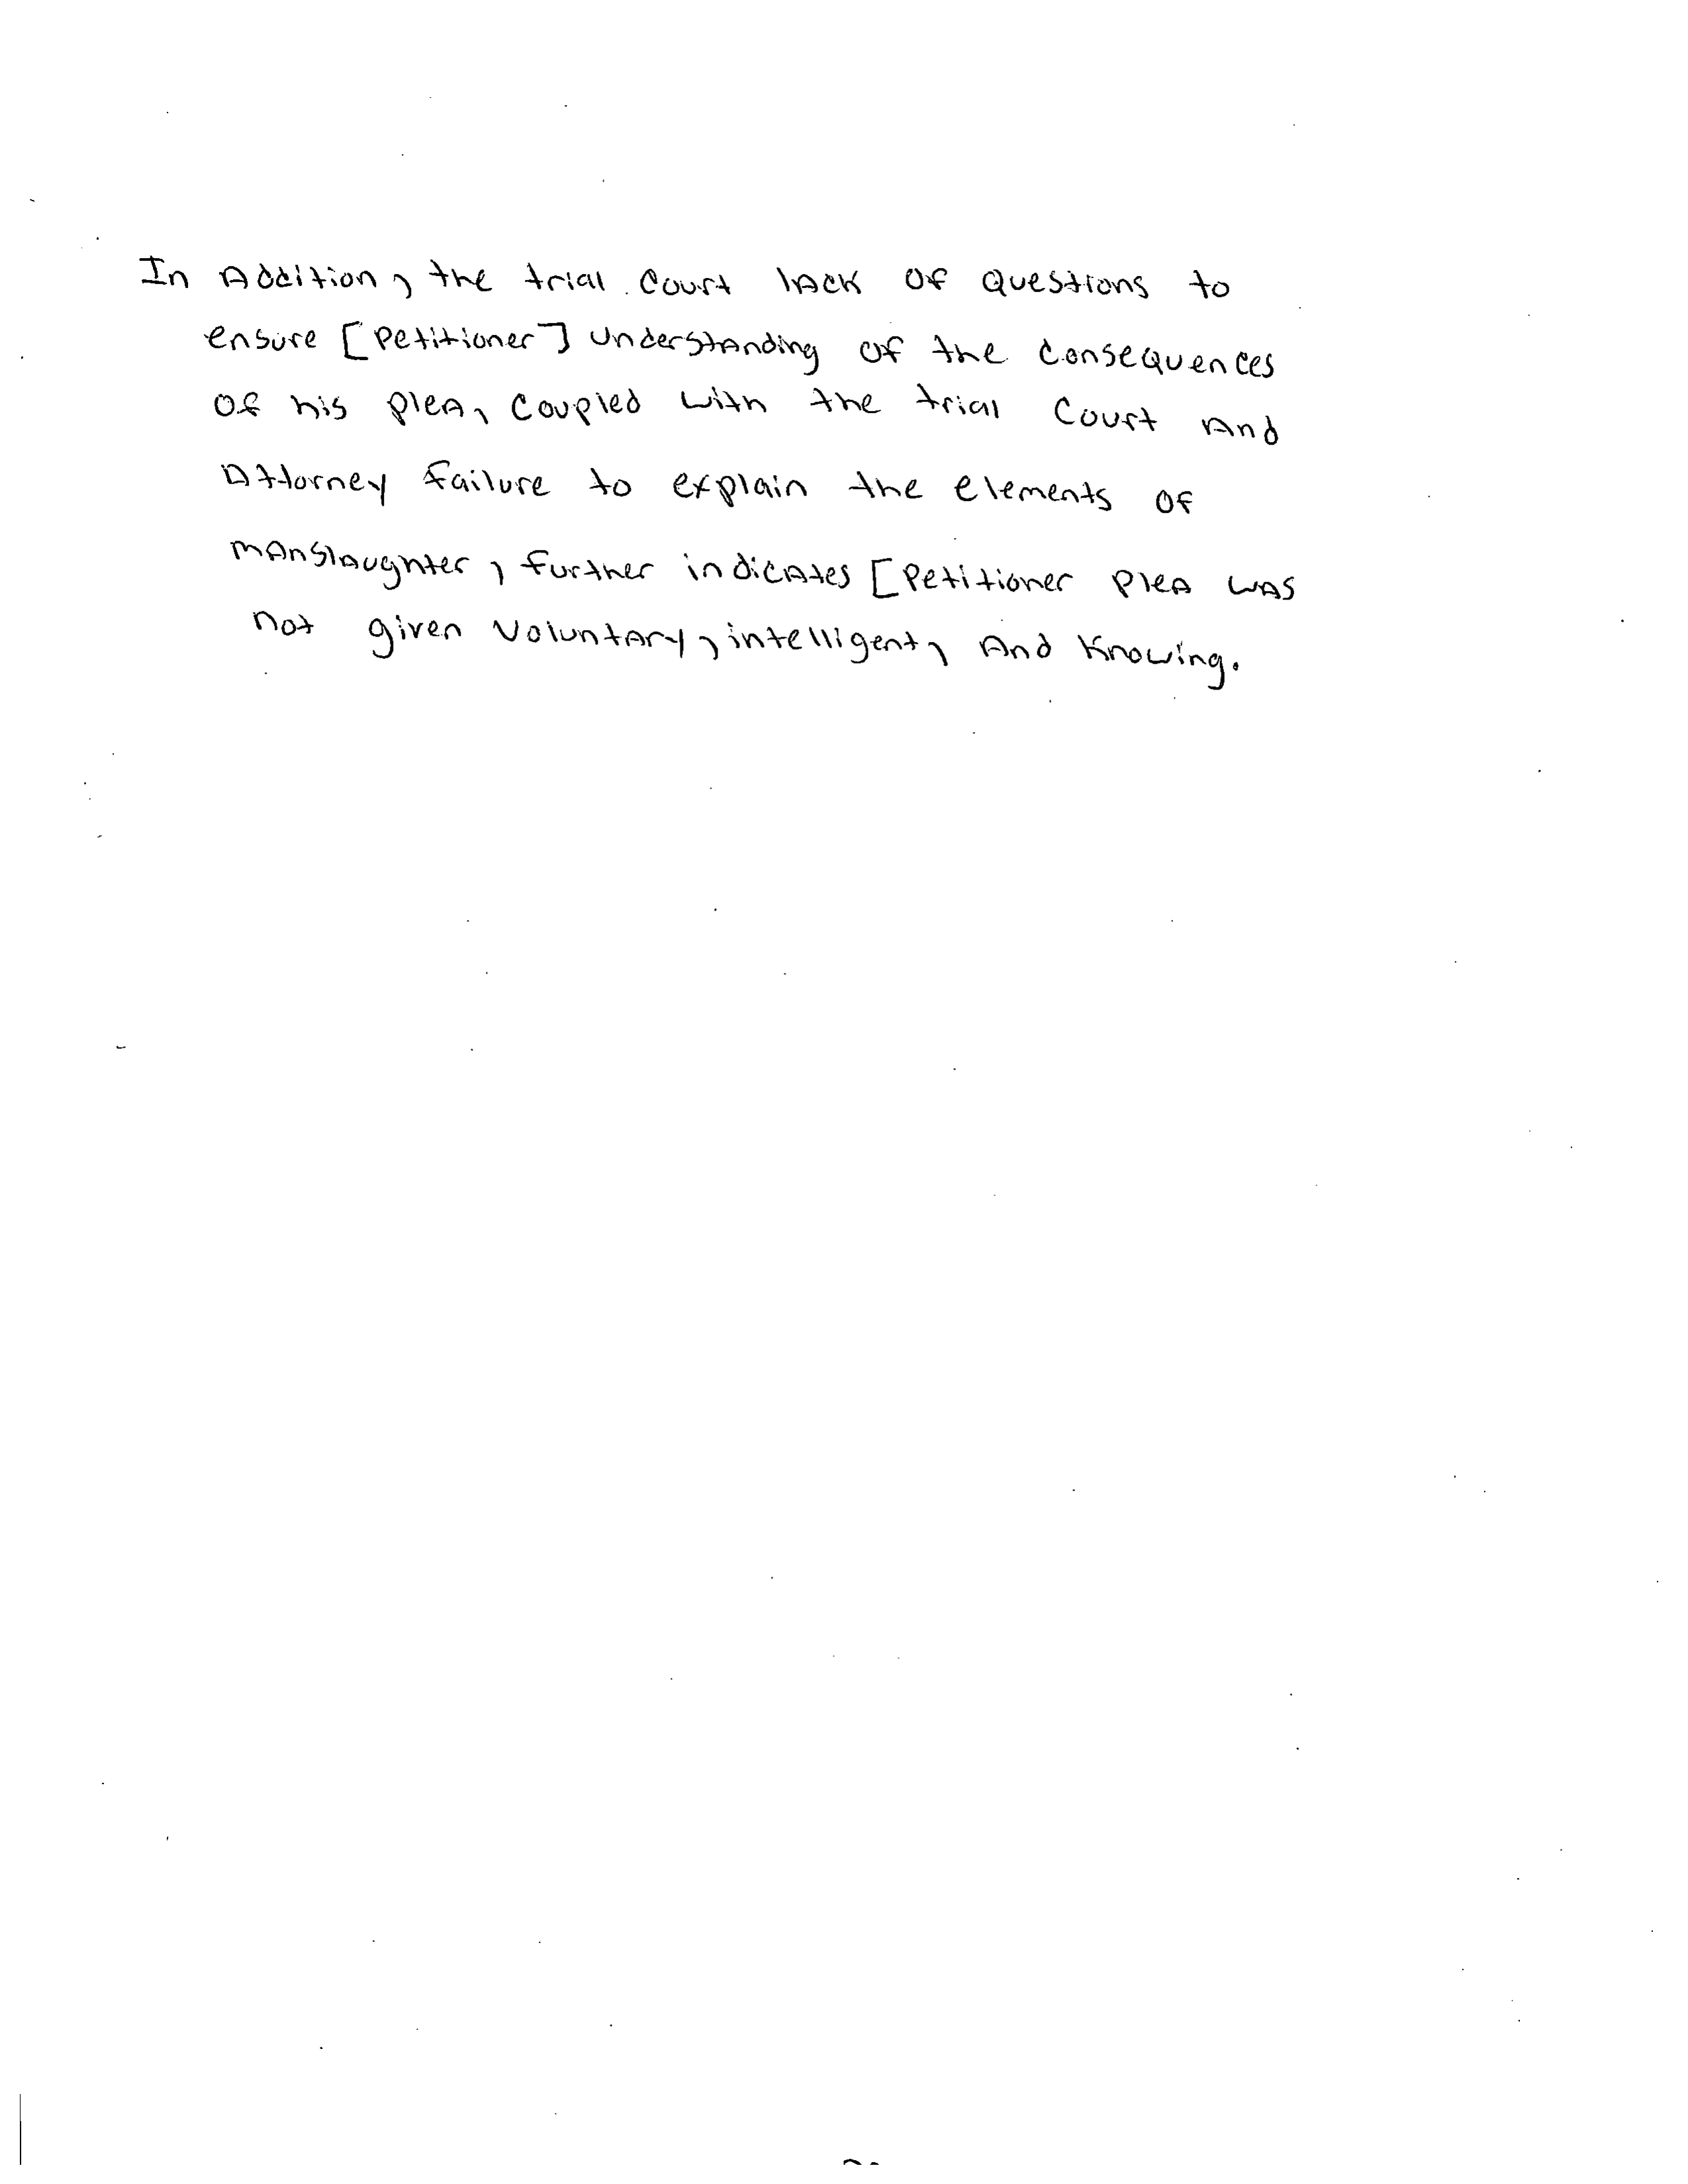 In Addition, the trial Court lack of Questions to
ensure [Petitioner] understanding of the Consequences
of his plea, Coupled with the trial Court And
Attorney failure to explain the elements of
manslaughter, further indicates [Petitioner Plea was
not given Voluntary, intelligent, And Knowing.